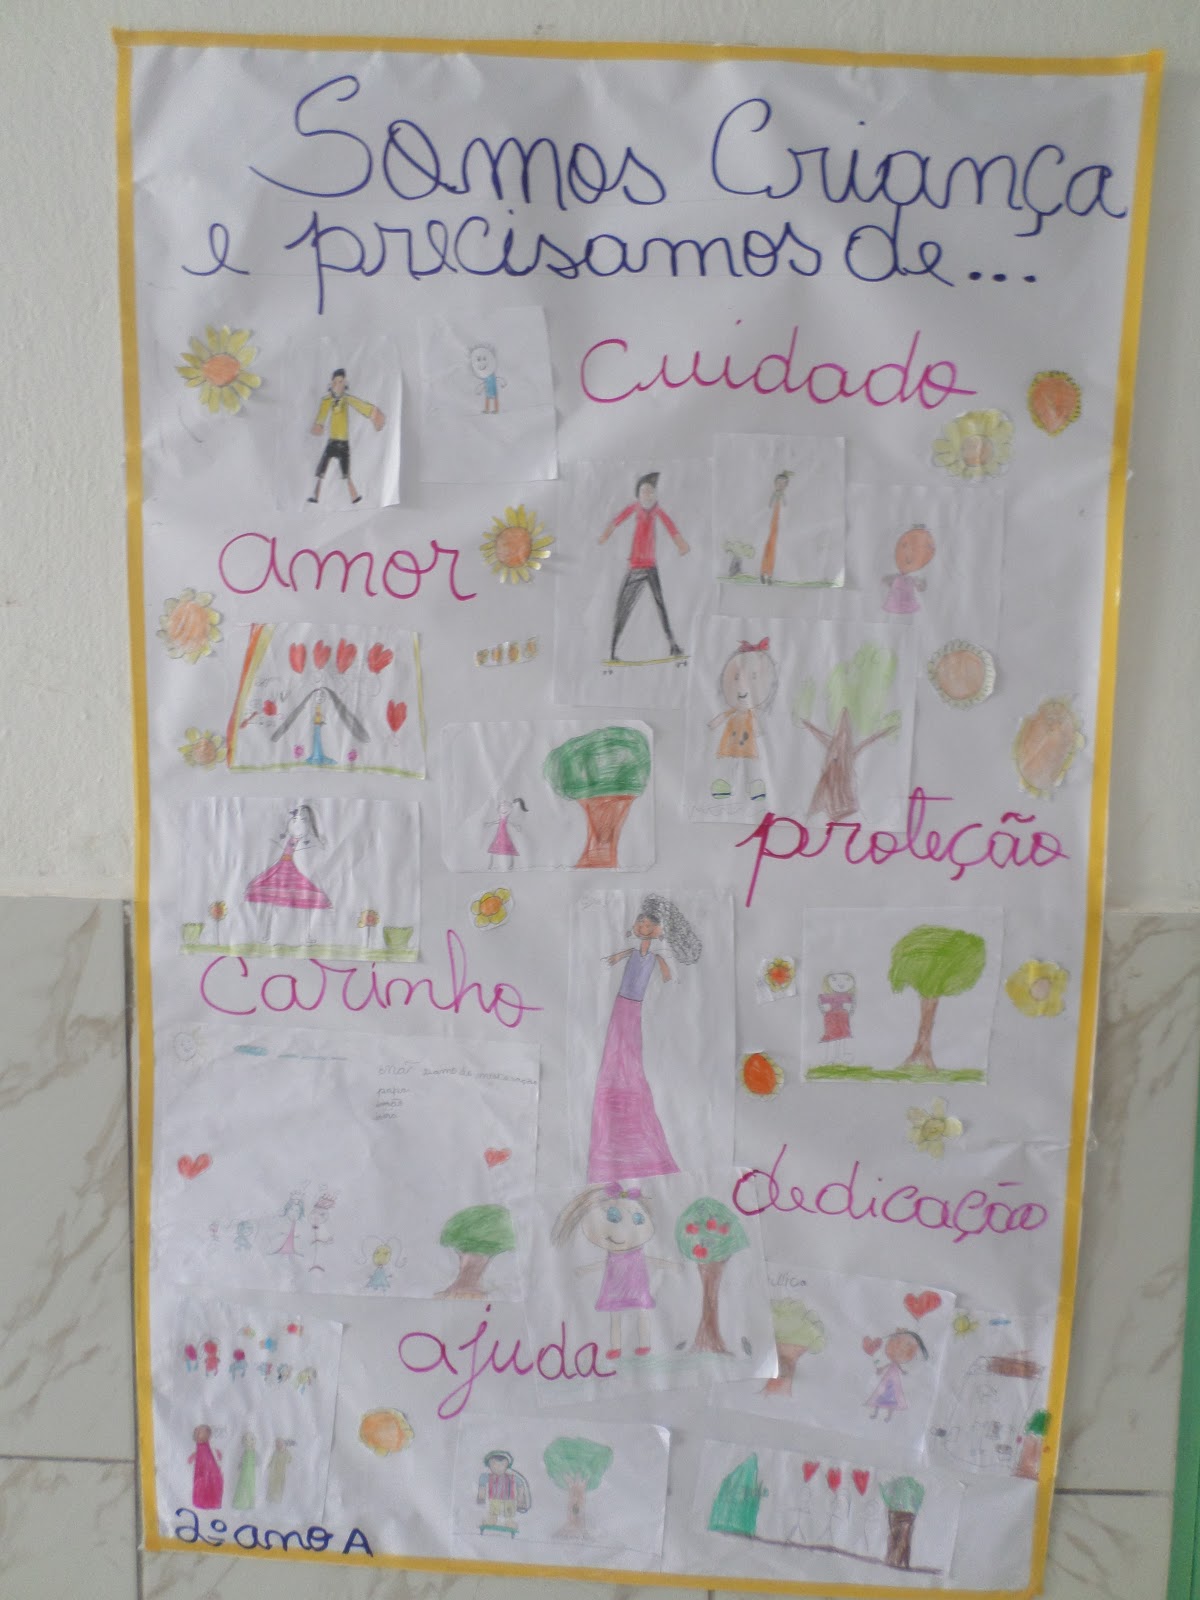 Somos Criança
e precisamos de...
cuidado
amor
proteção
carinho
dedicação
ajuda
2º ano A